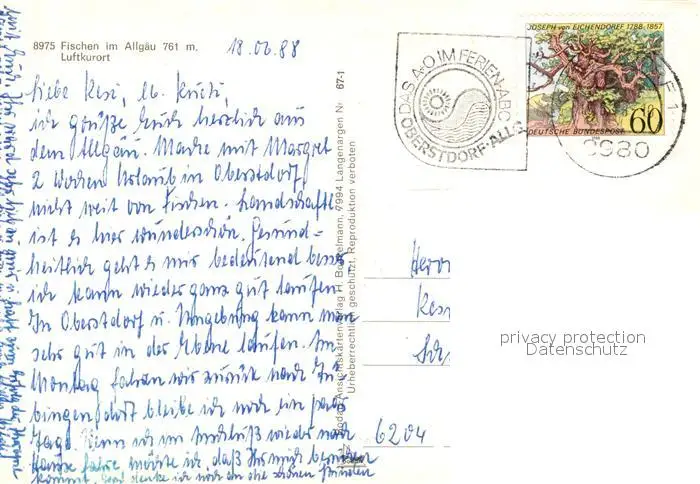 8975 Fischen im Allgäu 761 m.
Luftkurort
18.06.88
Liebe Kesi, lb. Kurti,
ich grüße Euch herzlich aus
dem Allgäu. Mache mit Margret
2 Wochen Urlaub in Oberstdorf,
nicht weit von Fischen. Landschaftl.
ist es hier wunderschön. Gesund=
heitlich geht es mir bedeutend besser
ich kann wieder ganz gut laufen.
In Oberstdorf u. Umgebung kann man
sehr gut in der Ebene laufen. Am
Montag fahren wir zurück nach Tü=
bingen, dort bleibe ich noch ein paar
Tage. Wenn ich im Anschluß wieder nach
Hause fahre möchte ich, daß Ihr mich besuchen
kommt. denke ich noch an die schönen Stunden
67-1
Ansichtskartenverlag H. 7994 Langenargen Nr
Urheberrechtlich geschützt, Reproduktion verboten
DAS A+O IM FERIEN-ABC
OBERSTDORF·ALLG
JOSEPH von EICHENDORFF 1788-1857
DEUTSCHE BUNDESPOST
60
8980
1
Herrn
6204
privacy protection
Datenschutz